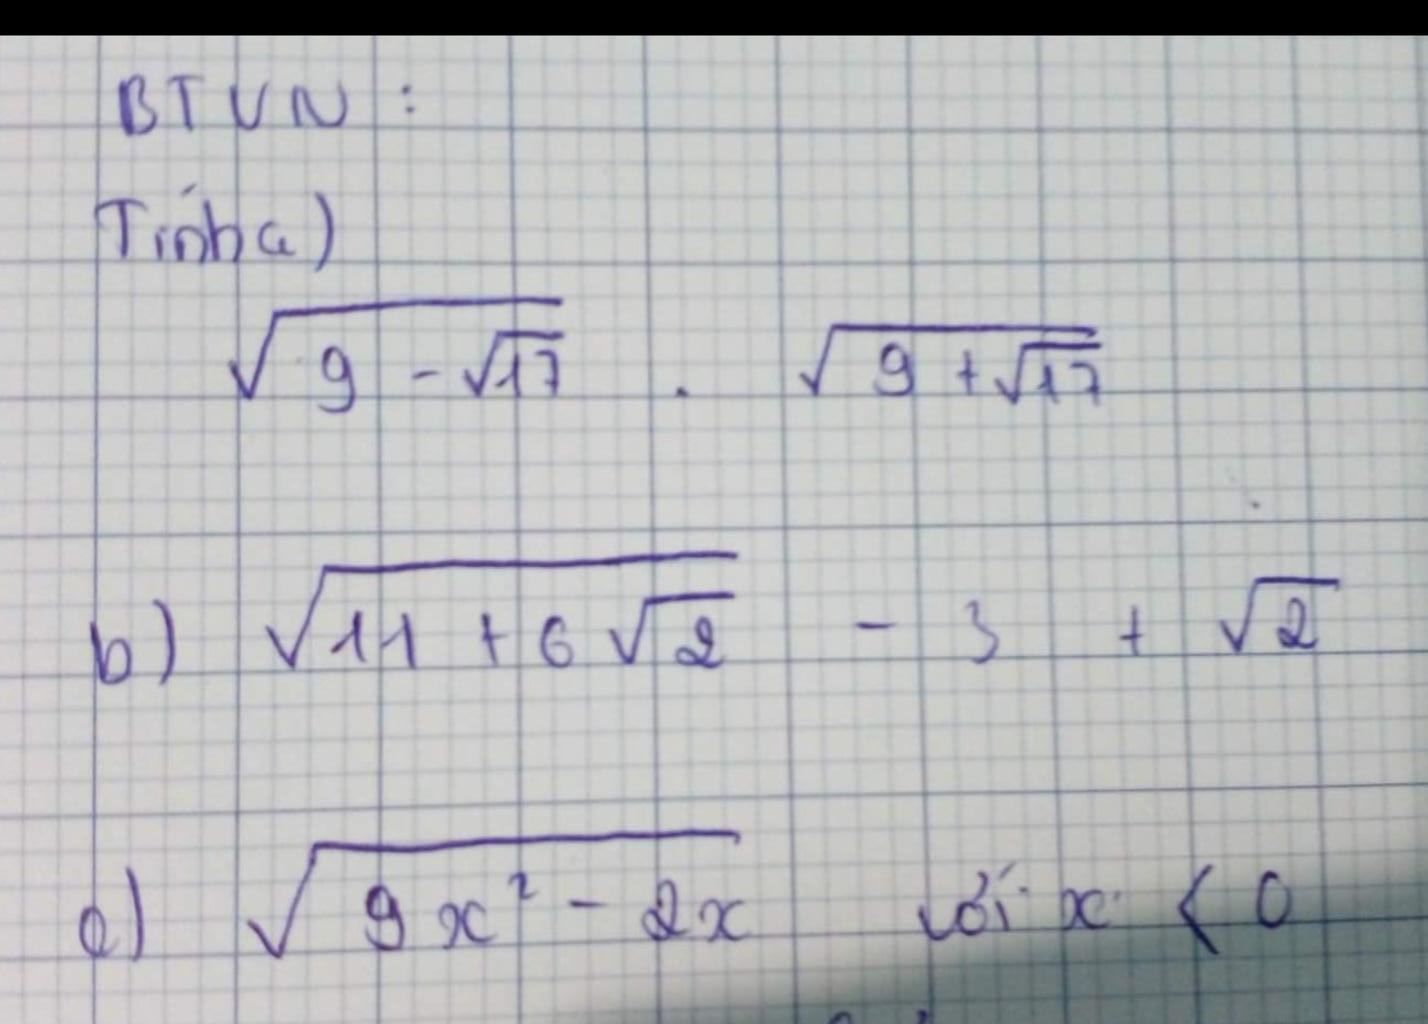 BTVN :
Tính a)
√(9 - √17) . √(9 + √17)
b) √(11 + 6√2) - 3 + √2
c) √(9x² - 2x) với x < 0